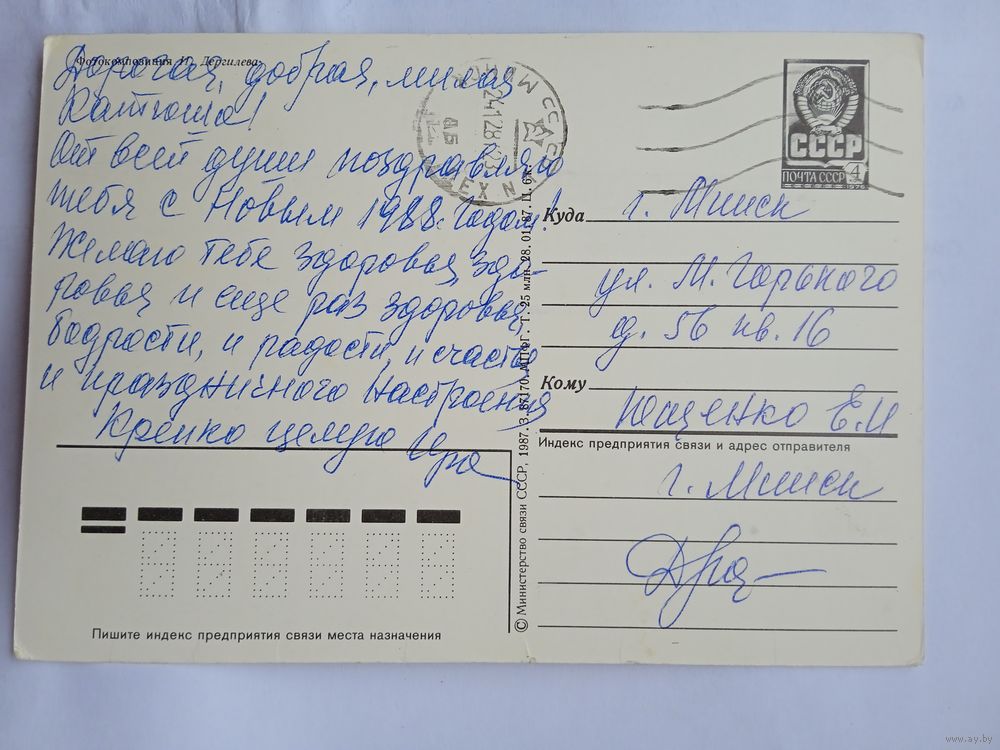 Фотокомпозиция И. Дергилева
Дорогая, добрая, милая
Катюша!
От всей души поздравляю
тебя с Новым 1988 годом!
Желаю тебе здоровья, здо-
ровья и еще раз здоровья,
бодрости, и радости, и счастья
и праздничного настроения
Крепко целую Ира
Пишите индекс предприятия связи места назначения
© Министерство связи СССР, 1987. З. 87170. МПФГ. Т. 25 млн. 28. 01. 87. Ц. 6 к.
СССР
ПОЧТА СССР
4
1976
Куда г. Минск
ул. М. Горького
д. 56 кв. 16
Кому
Ющенко Е.И
Индекс предприятия связи и адрес отправителя
г. Минск
www.ay.by